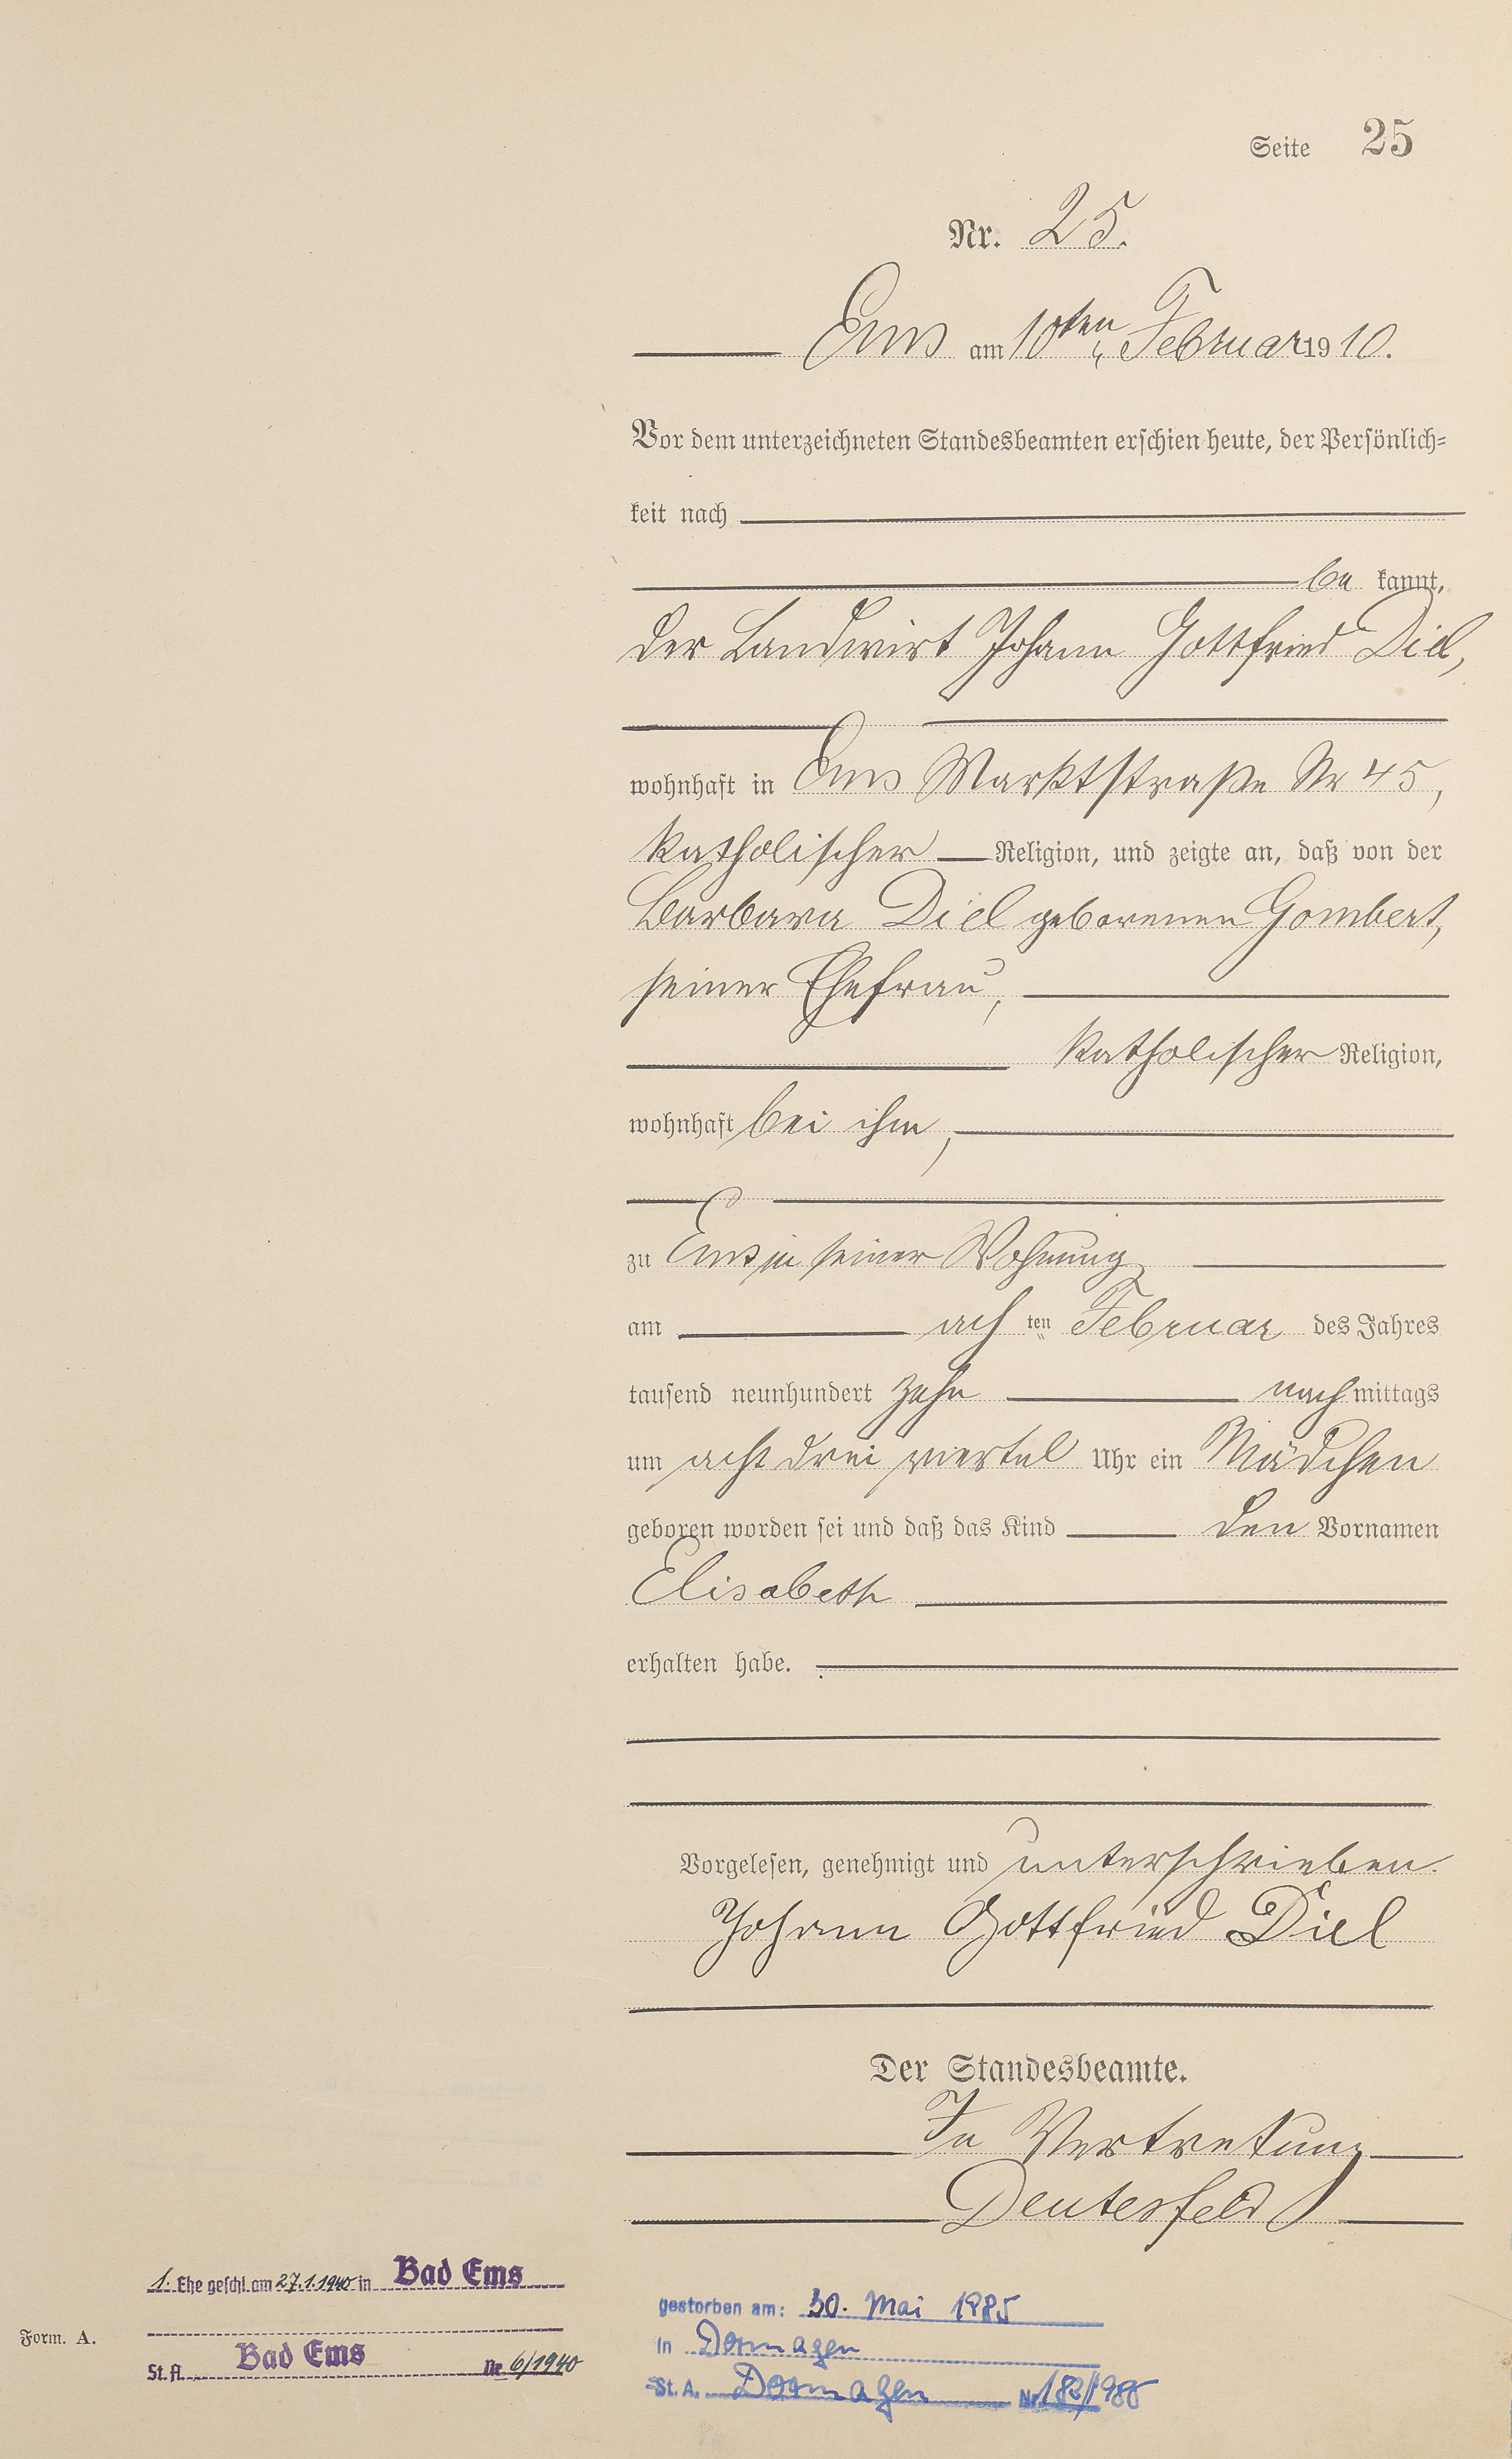 Seite 25
Nr. 25.
Ems am 10ten Februar 1910.
Vor dem unterzeichneten Standesbeamten erschien heute, der Persönlich-
keit nach
be kannt,
der Landwirt Johann Gottfried Diel,
wohnhaft in Ems Marktstraße Nr 45,
katholischer Religion, und zeigte an, daß von der
Barbara Diel geborenen Gombert,
seiner Ehefrau,
katholischer Religion,
wohnhaft bei ihm,
zu Ems in seiner Wohnung
am ach ten Februar des Jahres
tausend neunhundert zehn nachmittags
um acht drei viertel Uhr ein Mädchen
geboren worden sei und daß das Kind den Vornamen
Elisabeth
erhalten habe.
Vorgelesen, genehmigt und unterschrieben.
Johann Gottfried Diel
Der Standesbeamte.
In Vertretung
Deutesfeld
1. Ehe geschl. am 27.1.1940 in Bad Ems
St.A. Bad Ems Nr 6/1940
Form. A.
gestorben am: 30. Mai 1985
in Dormagen
St. A. Dormagen Nr. /1985